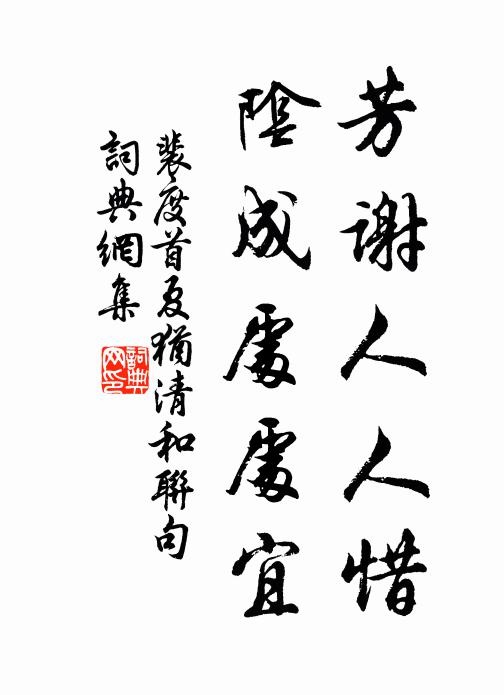 芳謝人人惜
陰成處處宜
裴度首夏猶清和聯句
詞典網集
詞典网印